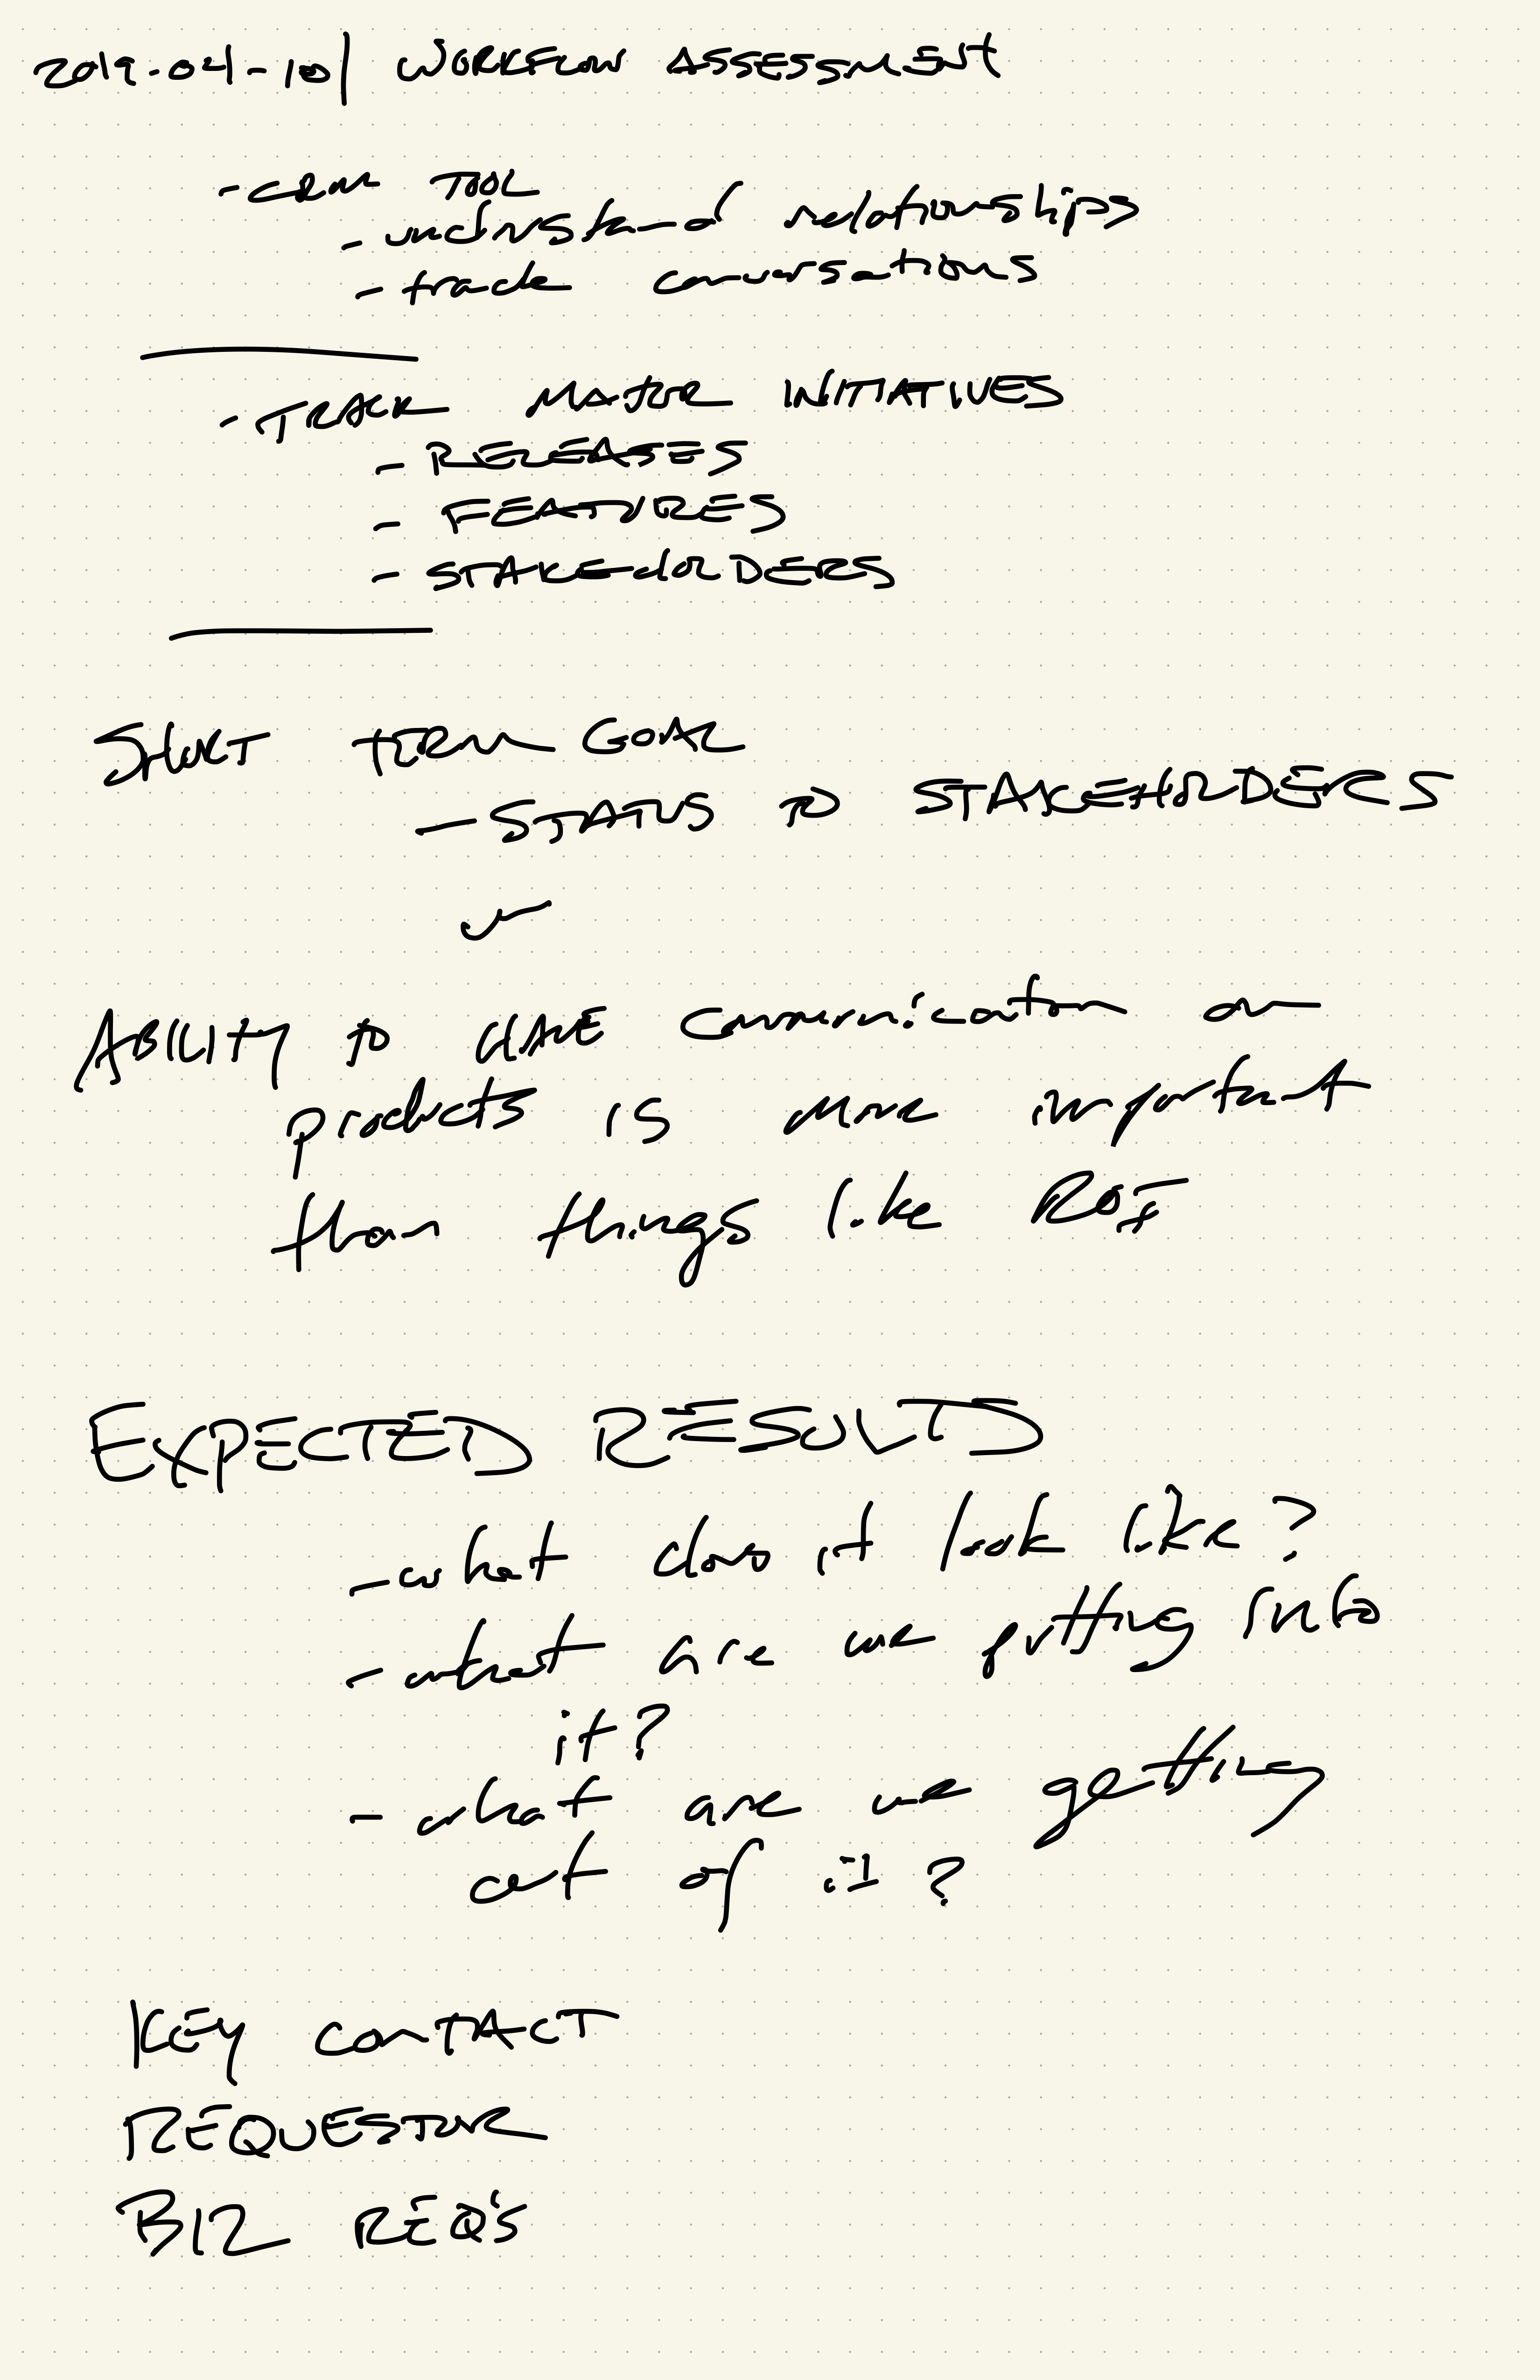 2019-04-10 | WORKFLOW ASSESSMENT
- CRM TOOL
- understand relationships
- track conversations
- TRACK MAJOR INITIATIVES
- RELEASES
- FEATURES
- STAKEHOLDERS
SHORT TERM GOAL
- STATUS TO STAKEHOLDERS
ABILITY TO HAVE communication on
products is more important
than things like ROI
EXPECTED RESULTS
- what does it look like?
- what are we putting into
it?
- what are we getting
out of it?
KEY CONTACT
REQUESTOR
BIZ REQ'S